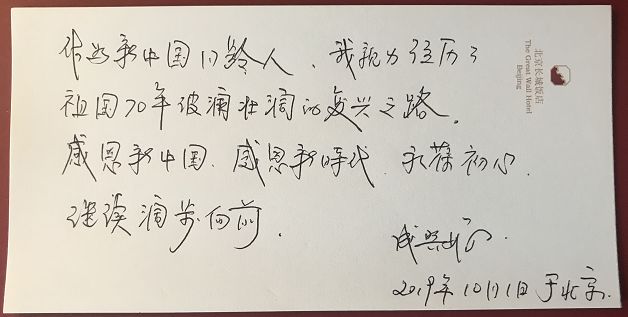 作为新中国同龄人，我亲力经历了
祖国70年波澜壮阔的复兴之路。
感恩新中国、感恩新时代、永葆初心、
继续阔步向前.
2019年10月1日于北京.
北京长城饭店
The Great Wall Hotel
Beijing